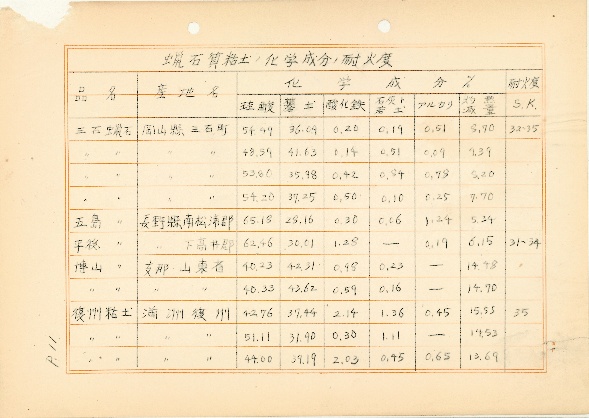 蝋石質粘土ノ化学成分ノ耐火度
品名 産地名 化学成分% 耐火度
硅酸 礬土 酸化鉄 石灰ト苦土 アルカリ 灼熱減量 S.K.
三石蝋石 岡山縣三石町 54.49 36.04 0.20 0.19 0.51 8.70 33-35
〃 〃 48.54 41.63 0.14 0.51 0.09 9.39
〃 〃 53.80 35.98 0.42 0.84 0.78 8.20
〃 〃 54.20 37.25 0.50 0.10 0.25 7.70
五島 〃 長野縣南松浦郡 65.18 28.16 0.30 0.06 1.24 5.24
平穏 〃 〃 下高井郡 62.46 30.01 1.28 — 0.19 6.15 31-34
博山 〃 支那・山東省 40.23 42.31 0.98 0.23 — 14.48 〃
〃 〃 40.33 43.62 0.59 0.16 — 14.70
復州粘土 満洲復州 42.76 37.44 2.14 1.36 0.45 15.55 35
〃 〃 〃 51.11 31.90 0.30 1.11 — 14.53
〃 〃 〃 44.00 39.19 2.03 0.45 0.65 13.69
P.11